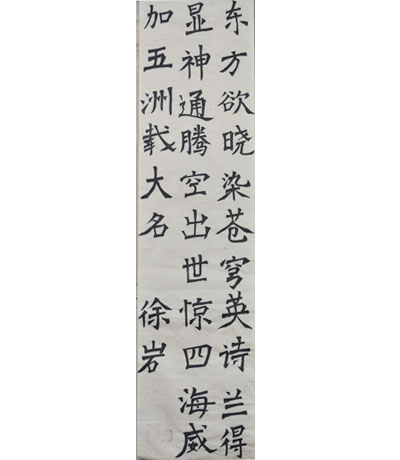 东方欲晓染苍穹英诗兰得
显神通腾空出世惊四海威
加五洲载大名 徐岩